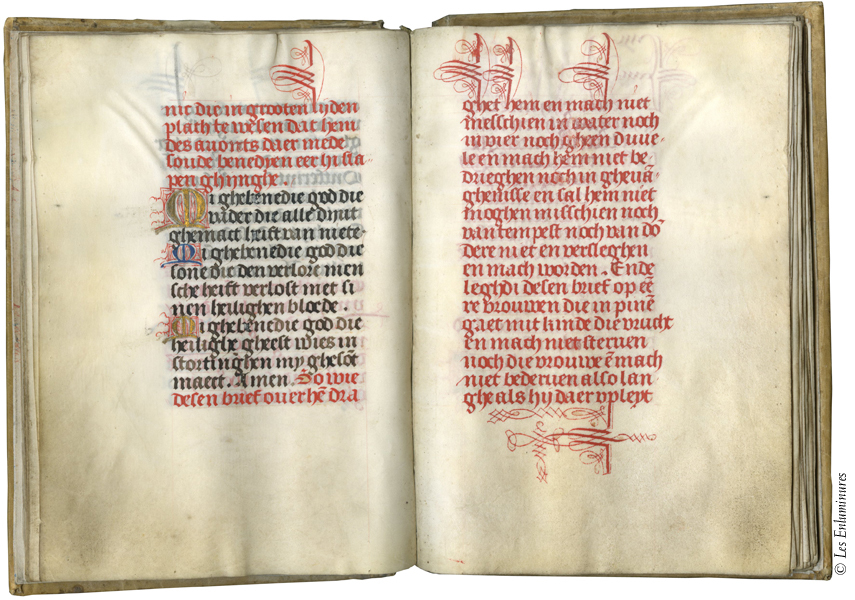 nit die in grooten lijden
plach te wesen dat hem
des auonts daer mede
soude benedyen eer hi sla
pen ghijnghe.
Mi ghebenedie god die
vader die alle dynt
ghemact heift van niete.
Mi ghebenedie god die
sone die den verlore men
sche heift verlost met si
nen heilighen bloede.
Mi ghebenedie god die
heilighe gheest wies in
stortinghen my ghesōt
maect. Amen. So wie
desen brief ouer hē dra
ghet hem en mach niet
messchien in water noch
in vier noch gheen duue
le en mach hem niet be
drieghen noch in gheuā
ghenisse en sal hem niet
moghen misschien noch
van tempest noch van dō
dere niet en versleghen
en mach worden. Ende
leghdi desen brief op eē
re vrouwen die in pinē
gaet mit kinde die vrucht
en mach niet steruen
noch die vrouwe ē mach
niet bederuen also lan
ghe als hij daer vp leyt
© Les Enluminures